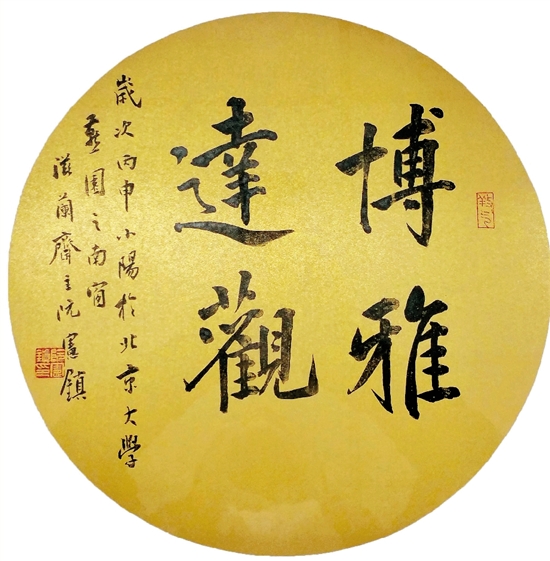 博雅
達觀
歲次丙申小陽於北京大學
燕園之南窗
滋蘭齋主阮憲鎮